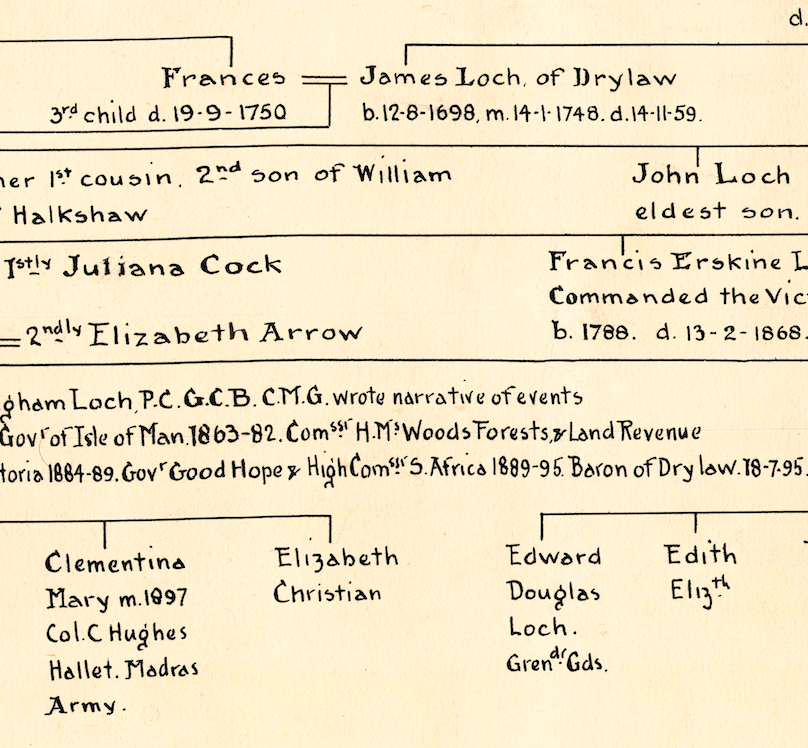 d.
Frances = James Loch, of Drylaw
3rd child d. 19-9-1750 b. 12-8-1698, m. 14-1-1748. d. 14-11-59.
her 1st cousin. 2nd son of William John Loch
Halkshaw eldest son.
1stly Juliana Cock Francis Erskine L
Commanded the Vic
= 2ndly Elizabeth Arrow b. 1788. d. 13-2-1868.
gham Loch, P.C. G.C.B. C.M.G. wrote narrative of events
Govr of Isle of Man. 1863-82. Comssr H.Ms Woods Forests, & Land Revenue
toria 1884-89. Govr Good Hope & High Comssr S. Africa 1889-95. Baron of Drylaw. 18-7-95.
Clementina Elizabeth Edward Edith
Mary m. 1897 Christian Douglas Elizth
Col. C Hughes Loch.
Hallet. Madras Grendr Gds.
Army.